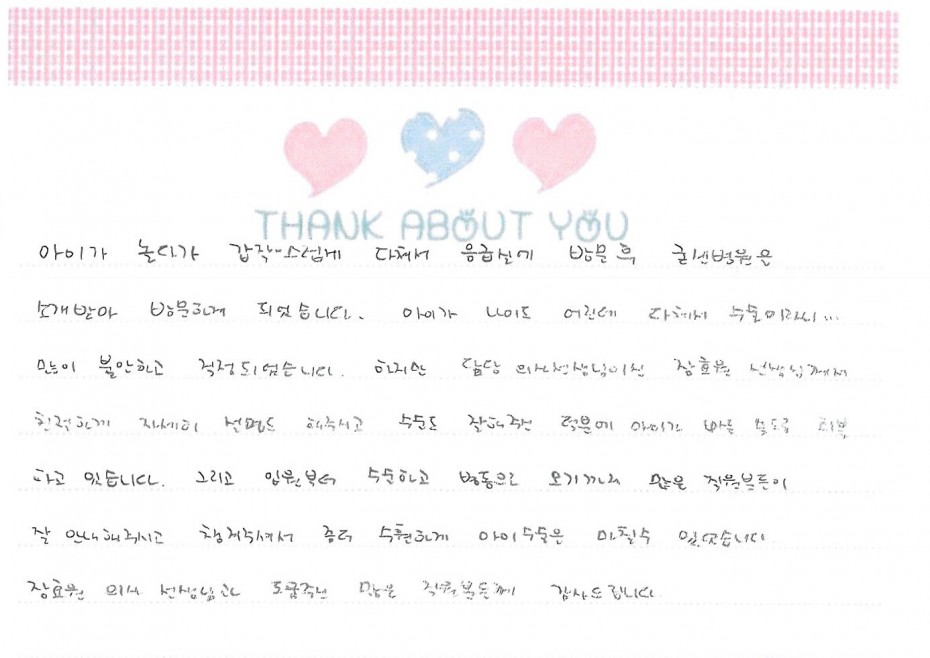 THANK ABOUT YOU
아이가 놀다가 갑작스럽게 다쳐서 응급실에 방문 후 굿센병원은
소개받아 방문하게 되었습니다. 아이가 나이도 어린데 다쳐서 수술이라니...
많이 불안하고 걱정되었습니다. 하지만 담당 의사선생님이신 장효원 선생님께서
친절하게 자세히 설명도 해주시고 수술도 잘해주신 덕분에 아이가 빠른 속도로 회복
하고 있습니다. 그리고 입원부터 수술하고 병동으로 오기까지 많은 직원분들이
잘 안내해주시고 챙겨주셔서 좀더 수월하게 아이 수술은 마칠수 있었습니다
장효원 의사 선생님과 도움주신 많은 직원분들께 감사드립니다.